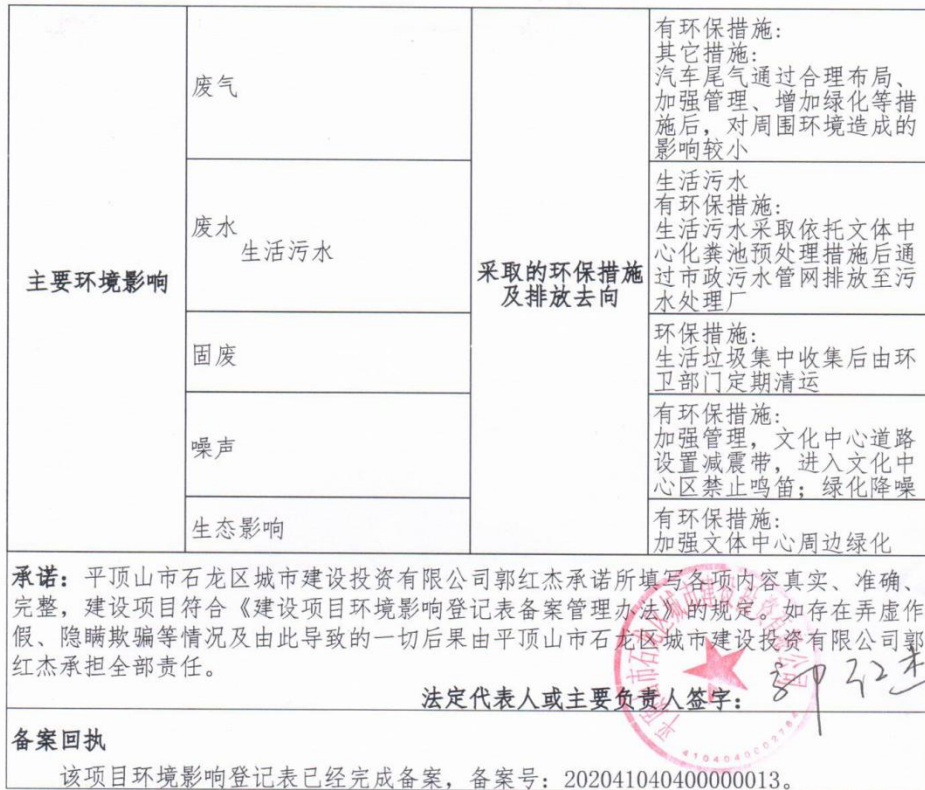 废气
有环保措施:
其它措施:
汽车尾气通过合理布局、
加强管理、增加绿化等措
施后，对周围环境造成的
影响较小
主要环境影响
废水
生活污水
采取的环保措施
及排放去向
生活污水
有环保措施:
生活污水采取依托文体中
心化粪池预处理措施后通
过市政污水管网排放至污
水处理厂
固废
环保措施:
生活垃圾集中收集后由环
卫部门定期清运
噪声
有环保措施:
加强管理，文化中心道路
设置减震带，进入文化中
心区禁止鸣笛；绿化降噪
生态影响
有环保措施:
加强文体中心周边绿化
承诺：平顶山市石龙区城市建设投资有限公司郭红杰承诺所填写各项内容真实、准确、
完整，建设项目符合《建设项目环境影响登记表备案管理办法》的规定。如存在弄虚作
假、隐瞒欺骗等情况及由此导致的一切后果由平顶山市石龙区城市建设投资有限公司郭
红杰承担全部责任。
法定代表人或主要负责人签字：
郭红杰
平顶山市石龙区城市建设投资有限公司
备案回执
该项目环境影响登记表已经完成备案，备案号：202041040400000013。